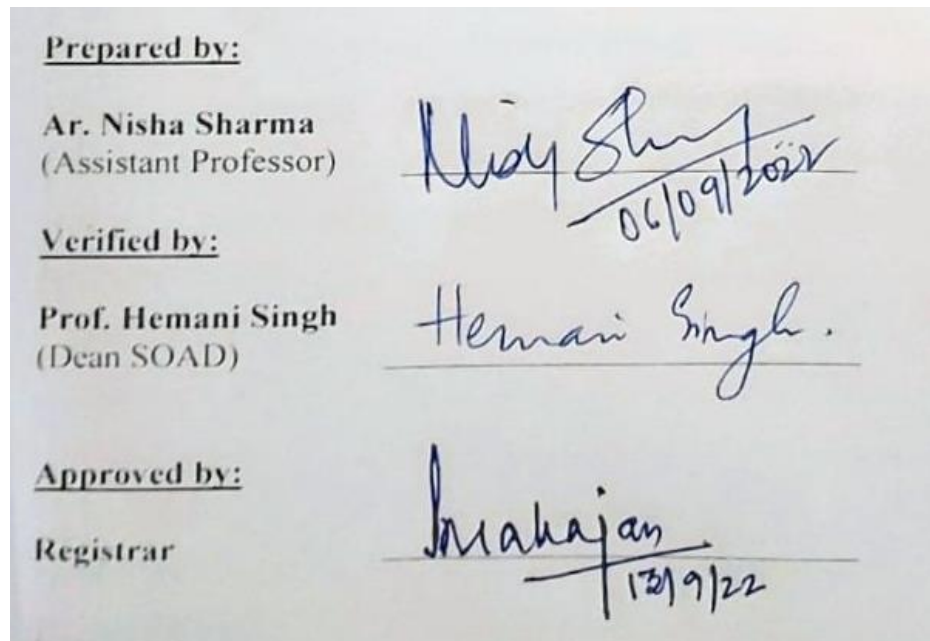 Prepared by:
Ar. Nisha Sharma
(Assistant Professor)
06/09/2022
Verified by:
Prof. Hemani Singh
(Dean SOAD)
Hemani Singh.
Approved by:
Registrar
Mahajan
13/9/22